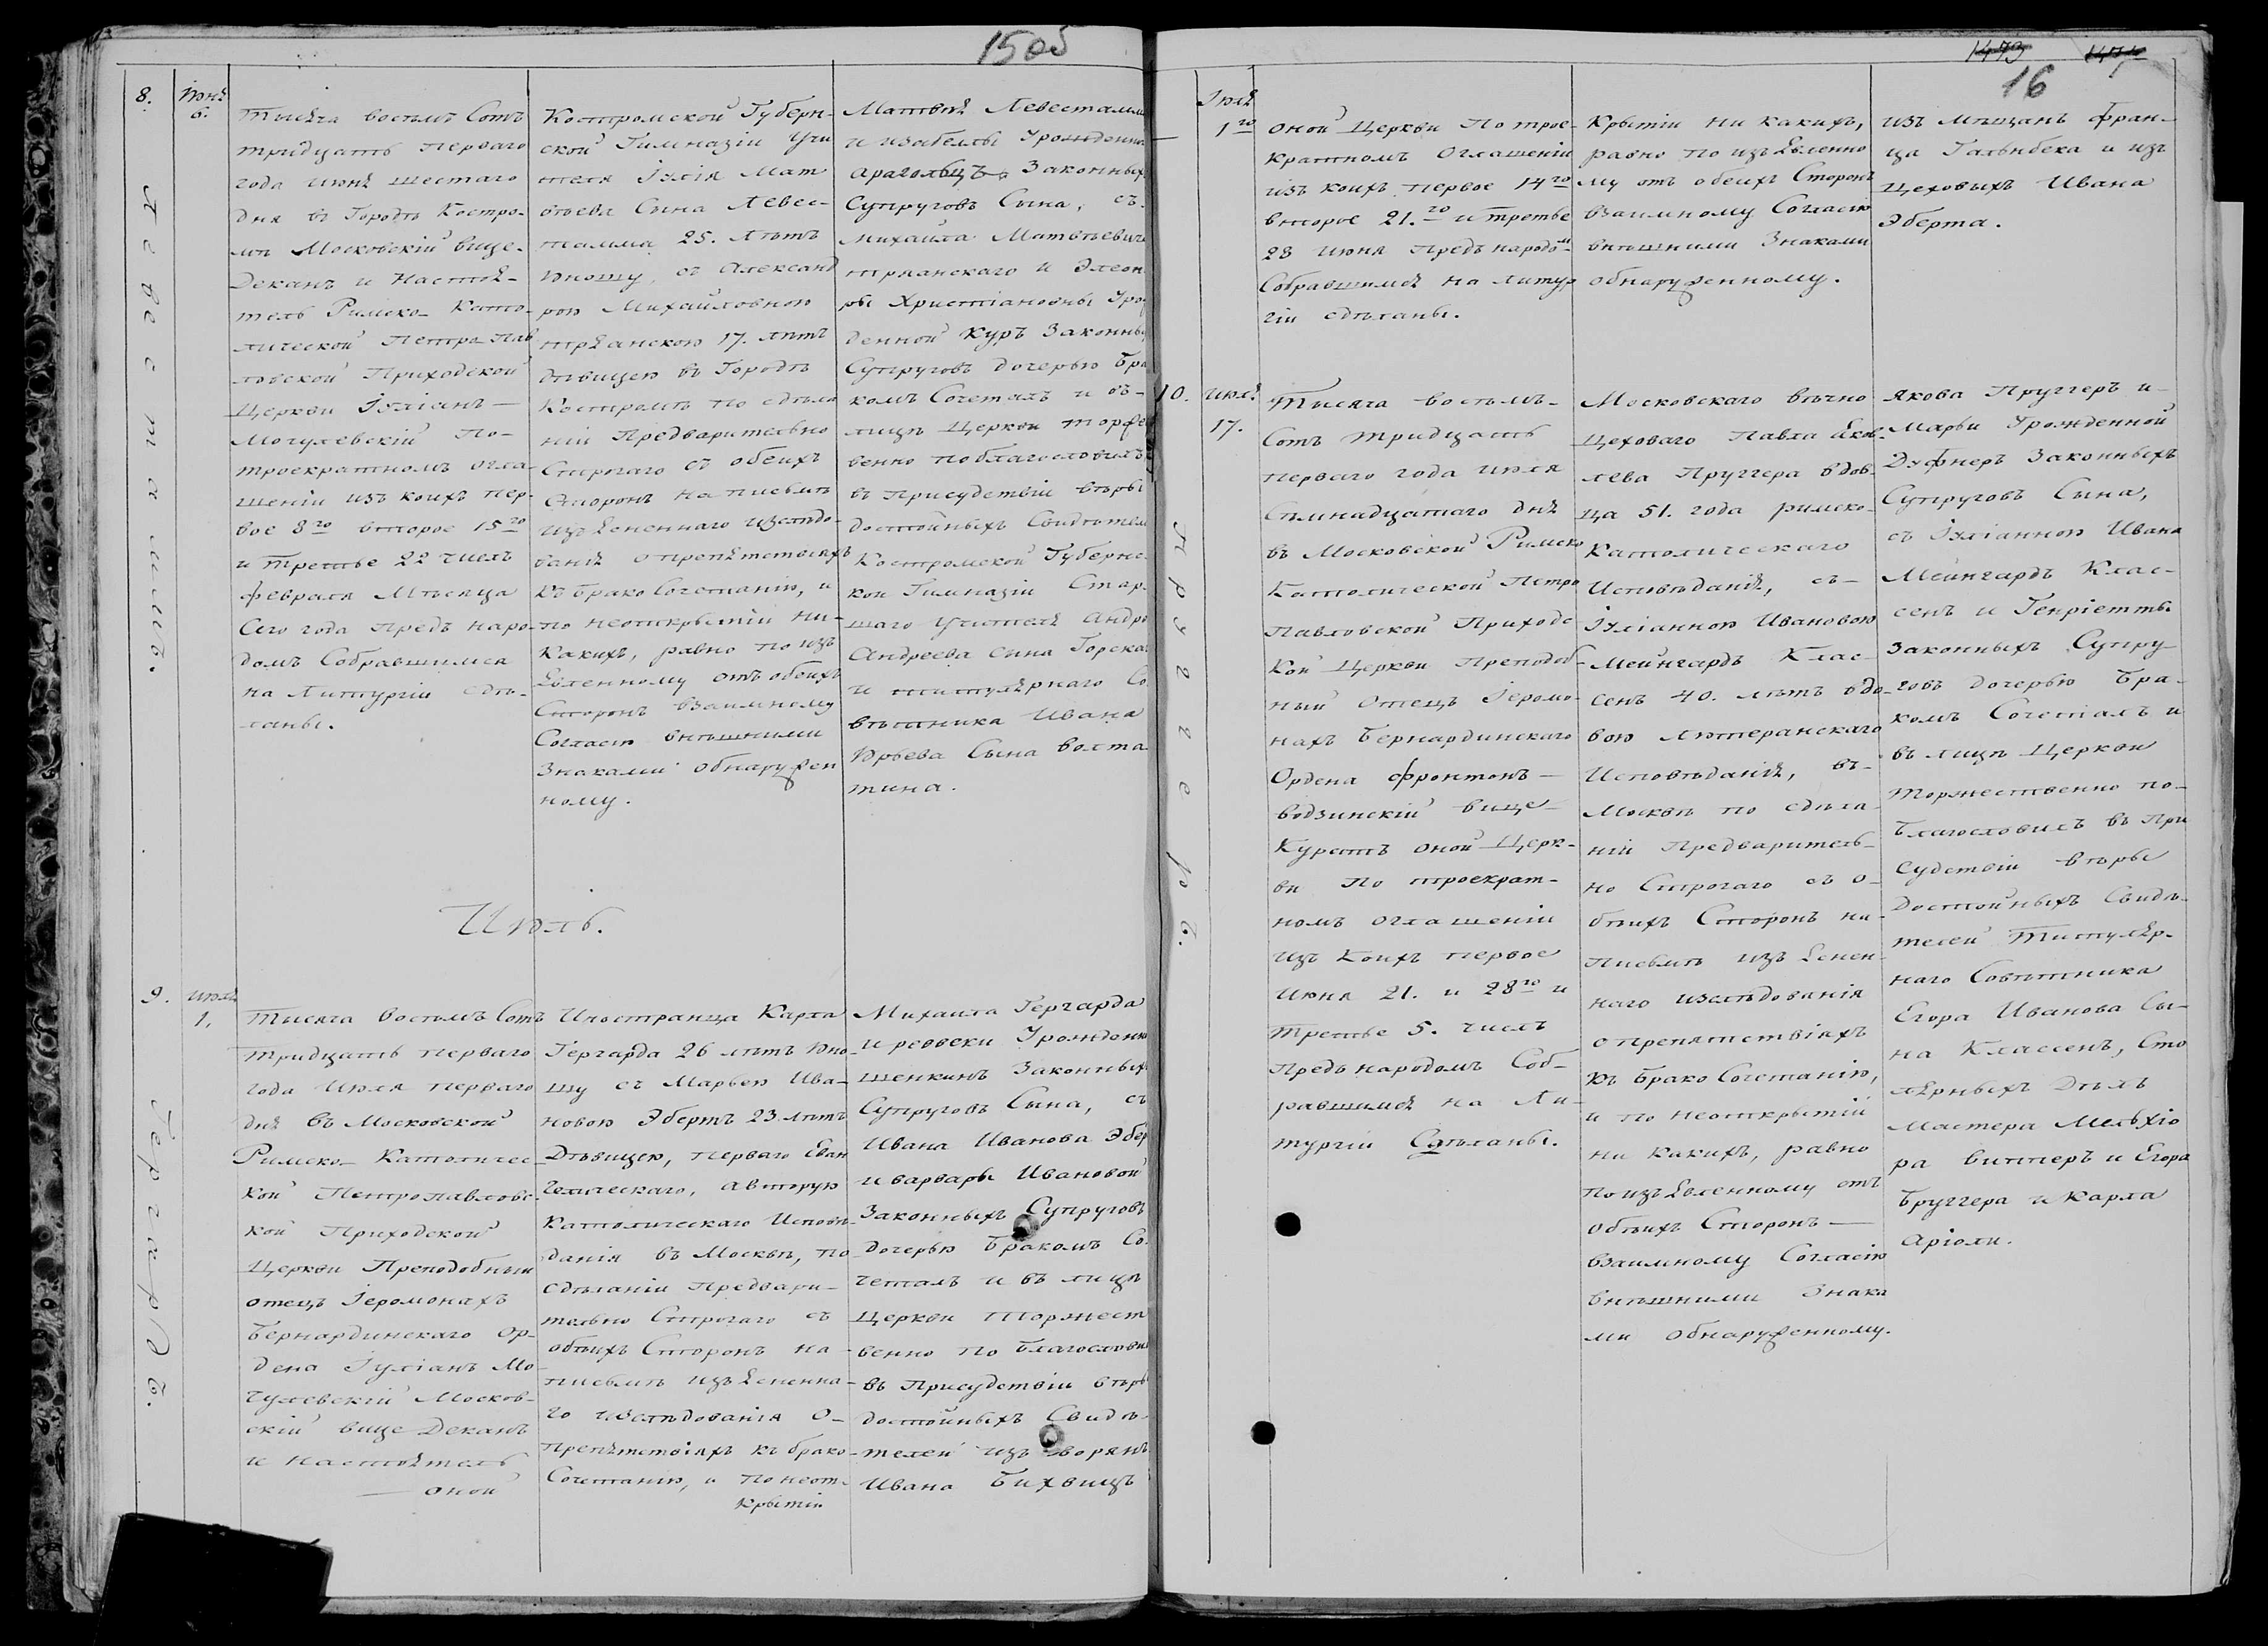 15 об
8.
Июня
6.
Левесталмъ.
Тысяча восемь Сотъ
тридцать перваго
года июня шестаго
дня въ Городѣ Костро-
мѣ Московскій вице-
Деканъ и Настоя-
тель Римско-Като-
лической Петро-Пав
ловской Приходской
Церкви Іуліанъ —
Могулевскій По-
троекратномъ огла
шеніи изъ коихъ пер-
вое 8го второе 15го
и третье 22 числъ
февраля Мѣсяца
Сего года предъ наро-
домъ Собравшимся
на Литургіи сдѣ-
ланы.
Костромской Губерн-
ской Гимназіи Учи
теля Іулія Мат
вѣева Сына Левес-
тамма 25. лѣтъ
Юношу, съ Александ
рою Михайловною
17. лѣтъ
дѣвицею въ Городѣ
Костромѣ по сдѣла
ніи Предварительно
Строгаго съ обеихъ
Сторонъ на письмѣ
изъясненнаго изслѣдо-
ванія о препятствіяхъ
къ брако Сочетанію, и
по неоткрытіи ни-
какихъ, равно по изъ
явленному отъ обеихъ
Сторонъ взаимному
Согласію внѣшними
Знаками обнаружен
ному.
Матвѣя Левесталмма
и изабеллы Урожденно
Законных
Супруговъ Сына, съ
михайла Матвѣевича
и Элеон
ры Христіановны Уро
денной Куръ Законны
Супруговъ дочерью Бра
комъ Сочеталъ и въ-
лицѣ Церкви торже
венно поблагословилъ
въ присудствіи вѣры
достойныхъ Свидѣтел
Костромской Губернс
кой Гимназіи Стар-
шаго учителя Андре
Андреева сына Горска
и титулярнаго Со
вѣтника Ивана
Юрьева Сына Волта
тина.
Июль.
9.
июля
1.
Герардъ.
Тысяча Восемь Сотъ
тридцать перваго
года июля перваго
дня въ Московской
Римско-Католичес-
кой Петропавловс-
кой Приходской
Церкви Преподобный
отецъ Іеромонахъ
Бернардинскаго Ор-
дена Іуліанъ Мо-
гулевскій Москов-
скій вице Деканъ
и настоятель
— оной
Иностранца Карла
Гергарда 26 лѣтъ Юно-
шу съ Марьею Ива-
новою Эбертъ 23 лѣтъ
Дѣвицею, перваго Еван
гелическаго, а вторую
Католическаго Исповѣ-
данія въ Москвѣ, по
Сдѣланіи Предвари-
тельно Строгаго съ
обѣихъ Сторонъ на-
письмѣ изъясненна-
го изслѣдованія О-
препятствіяхъ къ брако-
Сочетанію, и по неот-
крытіи
Михаила Гергарда
и Урожденн
Законных
Супруговъ Сына, съ
Ивана Иванова Эбер
и варвары Ивановой
Законныхъ Супруговъ
дочерью Бракомъ Со-
четалъ и въ лицѣ
Церкви торжест
венно по благослови
въ присудствіи вѣры
достойныхъ Свидѣ-
телей изъ дворянъ
Ивана Бихвицъ
1473
16
Іюля
1го
оной Церкви По трое-
кратномъ Оглашеніи
изъ коихъ первое 14го
второе 21.го и третье
28 июня предъ народомъ
Собравшимся на литур
гіи сдѣланы.
Крытіи ни какихъ,
равно по изъявленно
му отъ обеихъ Сторонъ
взаимному Согласію
внѣшними Знаками
обнаруженному.
изъ мѣщанъ фран-
ца Гальнбека и изъ
Цеховыхъ Ивана
Эберта.
10.
июля
17.
Пруггеръ.
Тысяча восемь-
Сотъ тридцать
перваго года июля
Семнадцатаго дня
въ Московской Римско
Католической Петро
Павловской Приходс
кой Церкви Преподоб-
ный Отецъ Іеромо-
нахъ Бернардинскаго
Ордена фронтонъ —
водзинскій вице
Куратъ оной Церк-
ви По троекрат-
номъ оглашеніи
изъ Коихъ первое
июня 21. и 28го и
третье 5. числъ
Предъ народомъ Соб-
равшимся на Ли-
тургіи Сдѣланы.
Московскаго вѣчно
Цеховаго Павла Яков-
лева Пруггера вдов-
ца 51. года римско-
католическаго
Исповѣданія, съ-
Іуліанною Ивановою
Мейнгардъ Клас-
сенъ 40. лѣтъ вдо-
вою Лютеранскаго
Исповѣданія, въ-
Москвѣ по сдѣла-
ніи Предваритель-
но Строгаго съ о-
бѣихъ Сторонъ на-
письмѣ изъяснен-
наго изслѣдованія
о препятствіяхъ
къ брако Сочетанію,
и по неоткрытіи
ни какихъ, равно
по изъявленному отъ
Обѣихъ Сторонъ —
взаимному Согласію
внѣшними Знака
ми обнаруженному.
Якова Пруггеръ и
Марьи Урожденной
Дуфнеръ Законныхъ
Супруговъ Сына,
съ Іуліанною Ивана
Мейнгардъ Клас-
сенъ и Генріетты
Законныхъ Супру-
говъ дочерью Бра-
комъ Сочеталъ и
въ лицѣ Церкви
торжественно по-
благословилъ въ при
судствіи вѣры
Достойныхъ Свидѣ-
телей Титуляр-
наго Совѣтника
Егора Иванова Сы-
на Классенъ, Сто
лярныхъ Дѣлъ
Мастера Мельхіо
ра Винтеръ и Егора
Бруггера и Карла
Аріоли.